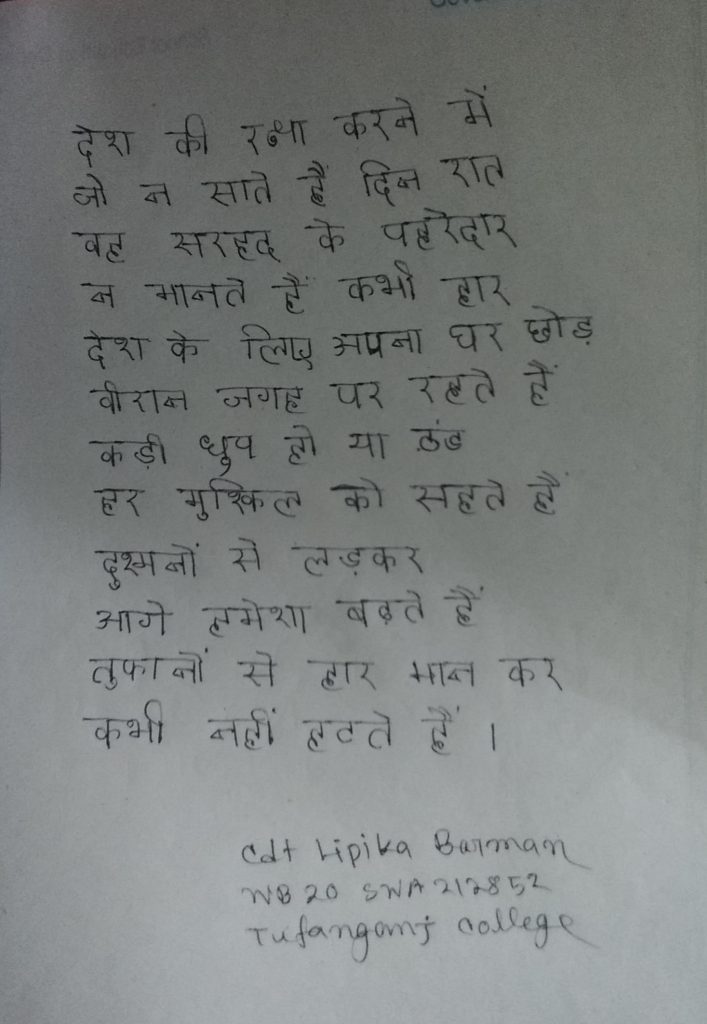 देश की रक्षा करने में
जो न साते हैं दिन रात
वह सरहद के पहरेदार
न मानते हैं कभी हार
देश के लिए अपना घर छोड़
वीरान जगह पर रहते हैं
कड़ी धुप हो या ठंड
हर मुश्किल को सहते हैं
दुश्मनों से लड़कर
आगे हमेशा बढ़ते हैं
तुफानों से हार मान कर
कभी नहीं हटते हैं ।
Cdt Lipika Barman
WB 20 SWA 212852
Tufanganj College